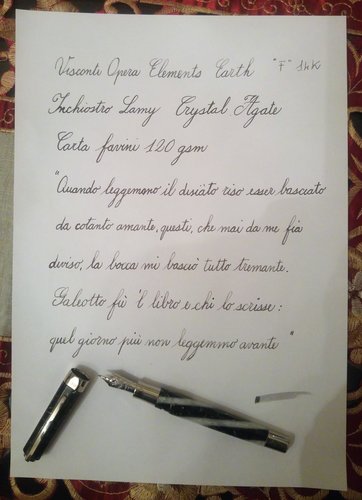 Visconti Opera Elements Earth "F" 14K
Inchiostro Lamy Crystal Agate
Carta favini 120 gsm
"Quando leggemmo il disiato riso esser basciato
da cotanto amante, questi, che mai da me fia
diviso, la bocca mi basciò tutto tremante.
Galeotto fu 'l libro e chi lo scrisse:
quel giorno più non leggemmo avante"